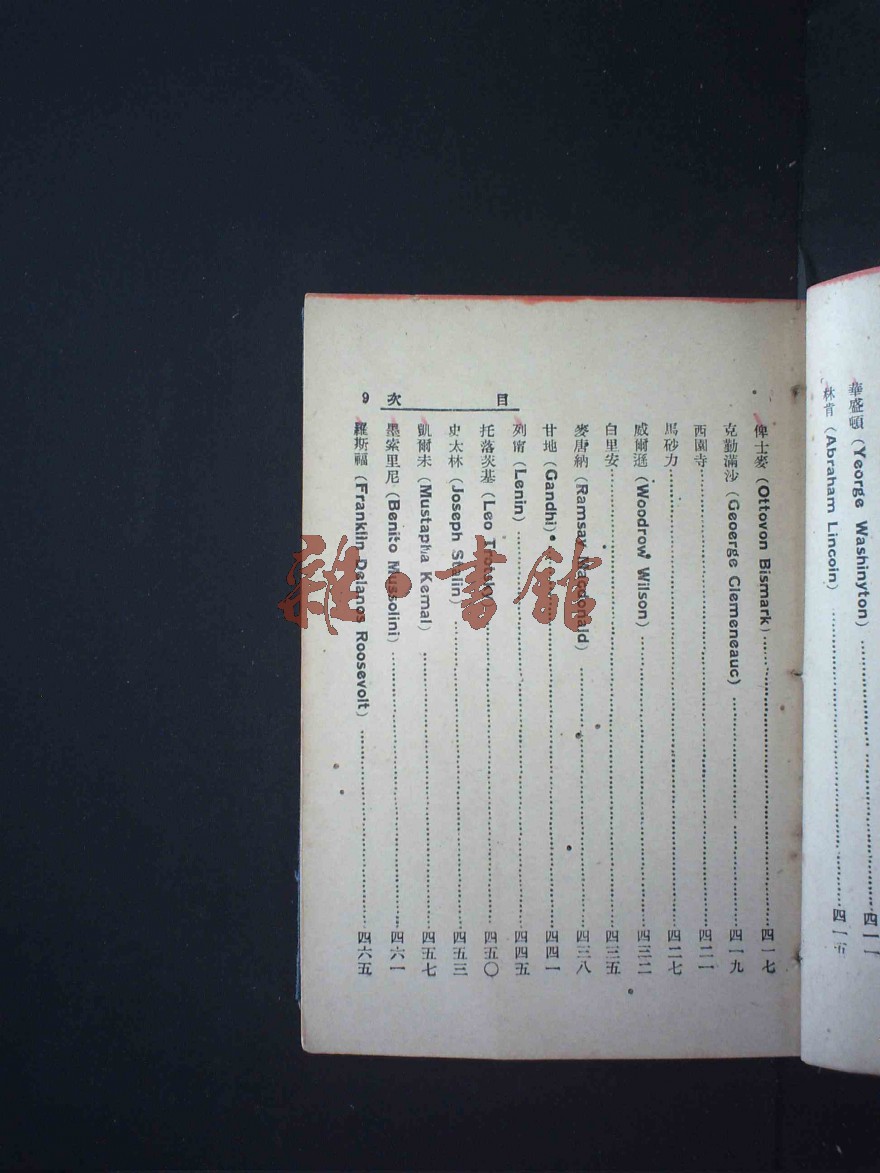 華盛頓 (Yeorge Washinyton)
林肯 (Abraham Lincoin) 四一五
目次 9
俾士麥 (Ottovon Bismark) 四一七
克勤滿沙 (Geoerge Clemeneauc) 四一九
西園寺 四二一
馬砂力 四二七
威爾遜 (Woodrow Wilson) 四三二
白里安 四三五
麥唐納 (Ramsay Macdonald) 四三八
甘地 (Gandhi) 四四一
列甯 (Lenin) 四四五
托落茨基 (Leo Trotsky) 四五〇
史太林 (Joseph Stalin) 四五三
凱爾末 (Mustapha Kemal) 四五七
墨索里尼 (Benito Mussolini) 四六一
羅斯福 (Franklin Delanos Roosevolt) 四六五
雜·書館